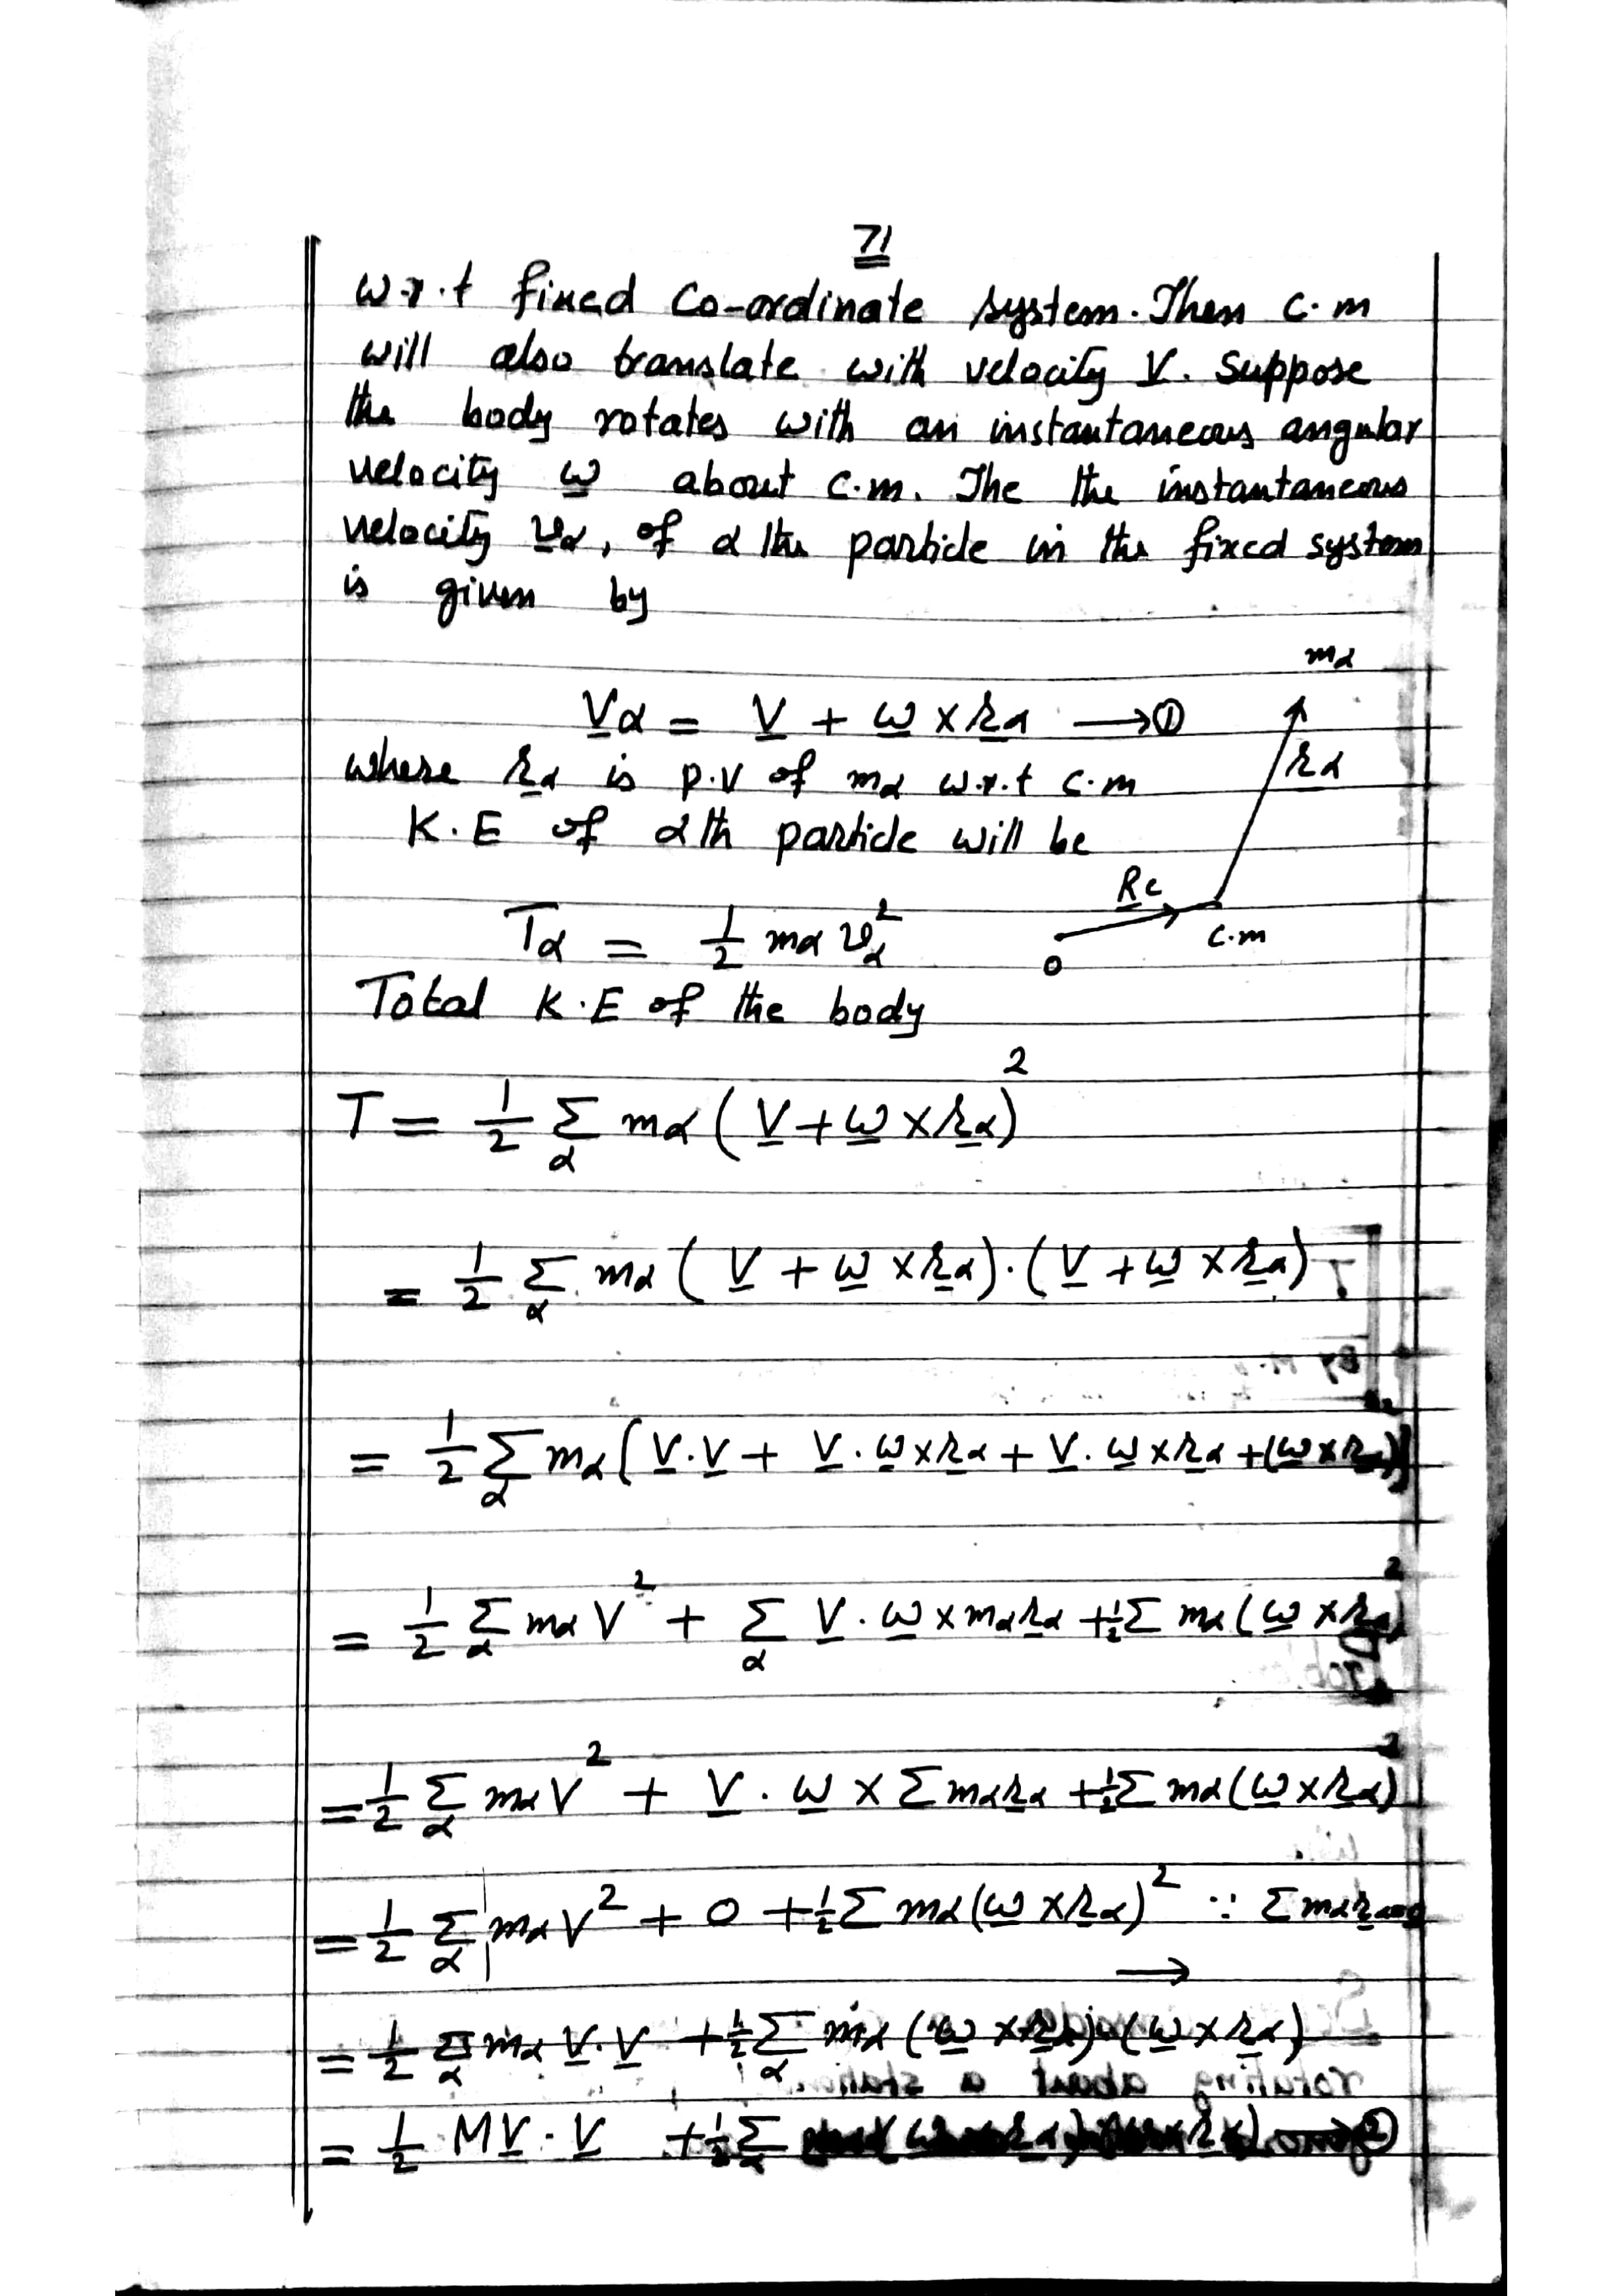 71
w.r.t fixed Co-ordinate system. Then C.m
will also translate with velocity V. Suppose
the body rotates with an instantaneous angular
velocity ω about c.m. The the instantaneous
velocity v_α, of α the particle in the fixed system
is given by
m_α
V_α = V + ω × r_α → ①
r_α
where r_α is p.v of m_α w.r.t c.m
K.E of αth particle will be
R_c
T_α = 1/2 m_α v_α^2
c.m
o
Total K.E of the body
T = 1/2 Σ_α m_α (V + ω × r_α)^2
= 1/2 Σ_α m_α (V + ω × r_α) . (V + ω × r_α)
= 1/2 Σ_α m_α [V.V + V.ω × r_α + V.ω × r_α + (ω × r_α)^2]
= 1/2 Σ_α m_α V^2 + Σ_α V.ω × m_α r_α + 1/2 Σ m_α (ω × r_α)^2
= 1/2 Σ_α m_α V^2 + V.ω × Σ m_α r_α + 1/2 Σ m_α (ω × r_α)^2
= 1/2 Σ_α m_α V^2 + 0 + 1/2 Σ m_α (ω × r_α)^2 ∵ Σ m_α r_α = 0
→
= 1/2 Σ_α m_α V.V + 1/2 Σ_α m_α (ω × r_α).(ω × r_α)
= 1/2 M V.V + 1/2 Σ_α (ω × r_α) → ②